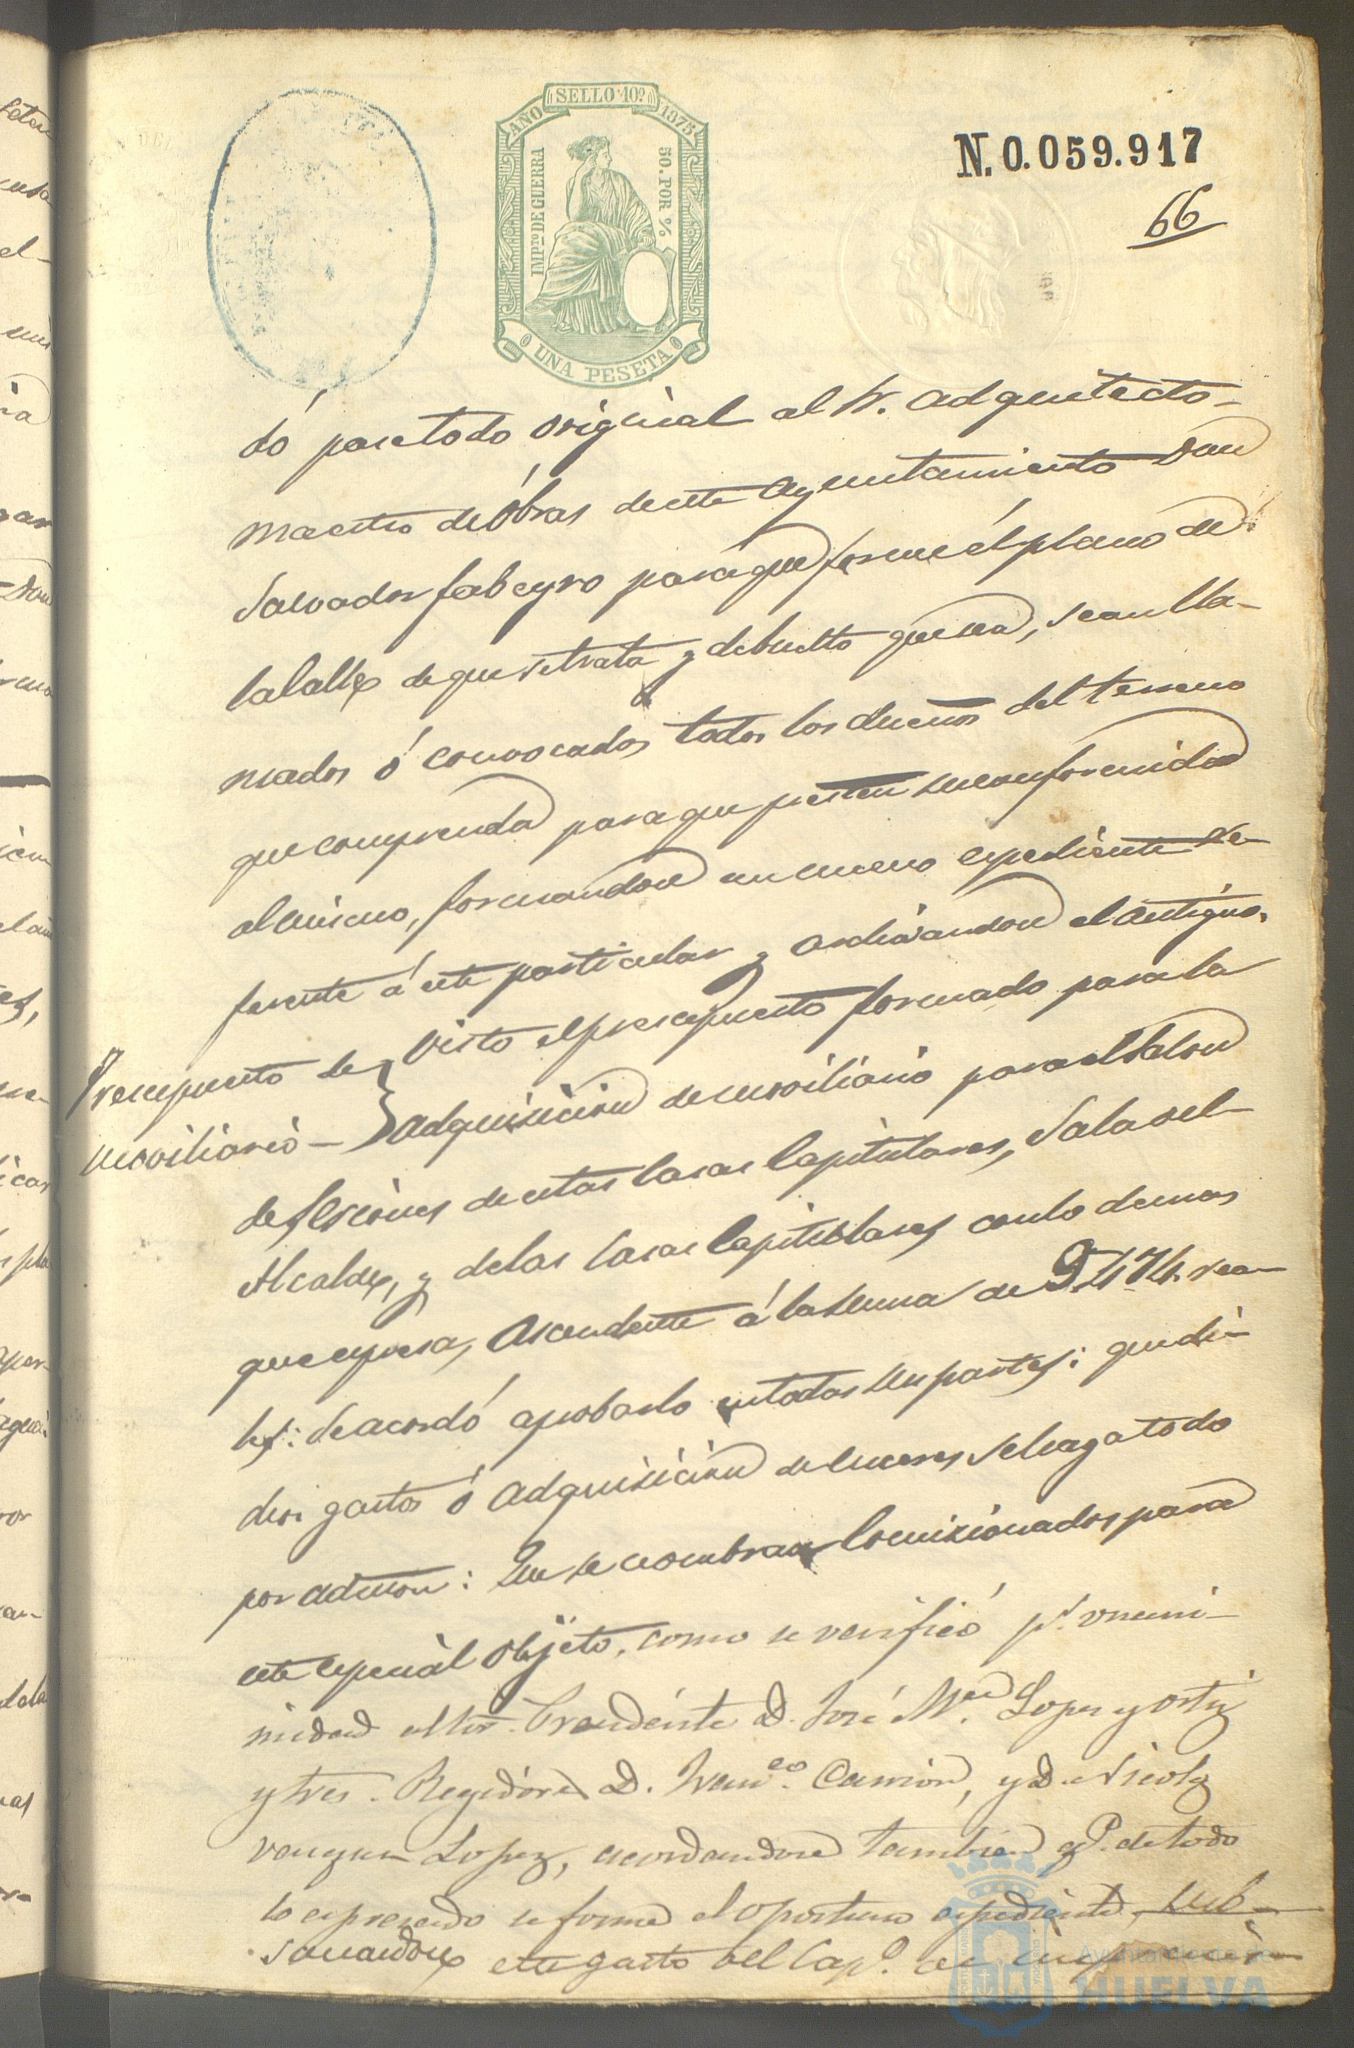 SELLO 10º
AÑO 1875
IMPTO DE GUERRA
50. POR %
UNA PESETA
N. 0.059.917
66
dó pase todo original al Sr. Adquitecto-
Maestro de Obras de este Ayuntamiento Don
Salvador Fabeyro para que forme el plano de
la Calle de que se trata y debuelto que sea, sean lla-
mados ó convocados todos los dueños del terreno
que comprenda para que presten su conformidad
al mismo, formandose un nuevo expediente re-
ferente á este particular y archivandose el antiguo.
Presupuesto de
moviliario-
Visto el presupuesto formado para la
adquisicion de moviliario para el Salon
de Sesiones de estas Casas Capitulares, Sala del
Alcalde, y de las Casas Capitulares con lo demas
que espresa, ascendente á la suma de 9.474. rea-
les: Se acordó aprobarlo en todas sus partes: que di-
chos gastos ó adquisicion de enseres se haga todo
por admon: Que se nombran Comisionados para
este especial objeto, como se verificó pr. unani-
midad al Sor. Presidente D. José Ma. Lopez y Ortiz
y Sres. Regidores D. Franco. Carrion, y D. Nicolas
Vazquez Lopez, acordandose tambien qe. de todo
lo espresado se forme el oportuno expediente, sub-
sanandose este gasto del Capo. de
Ayuntamiento de
HUELVA